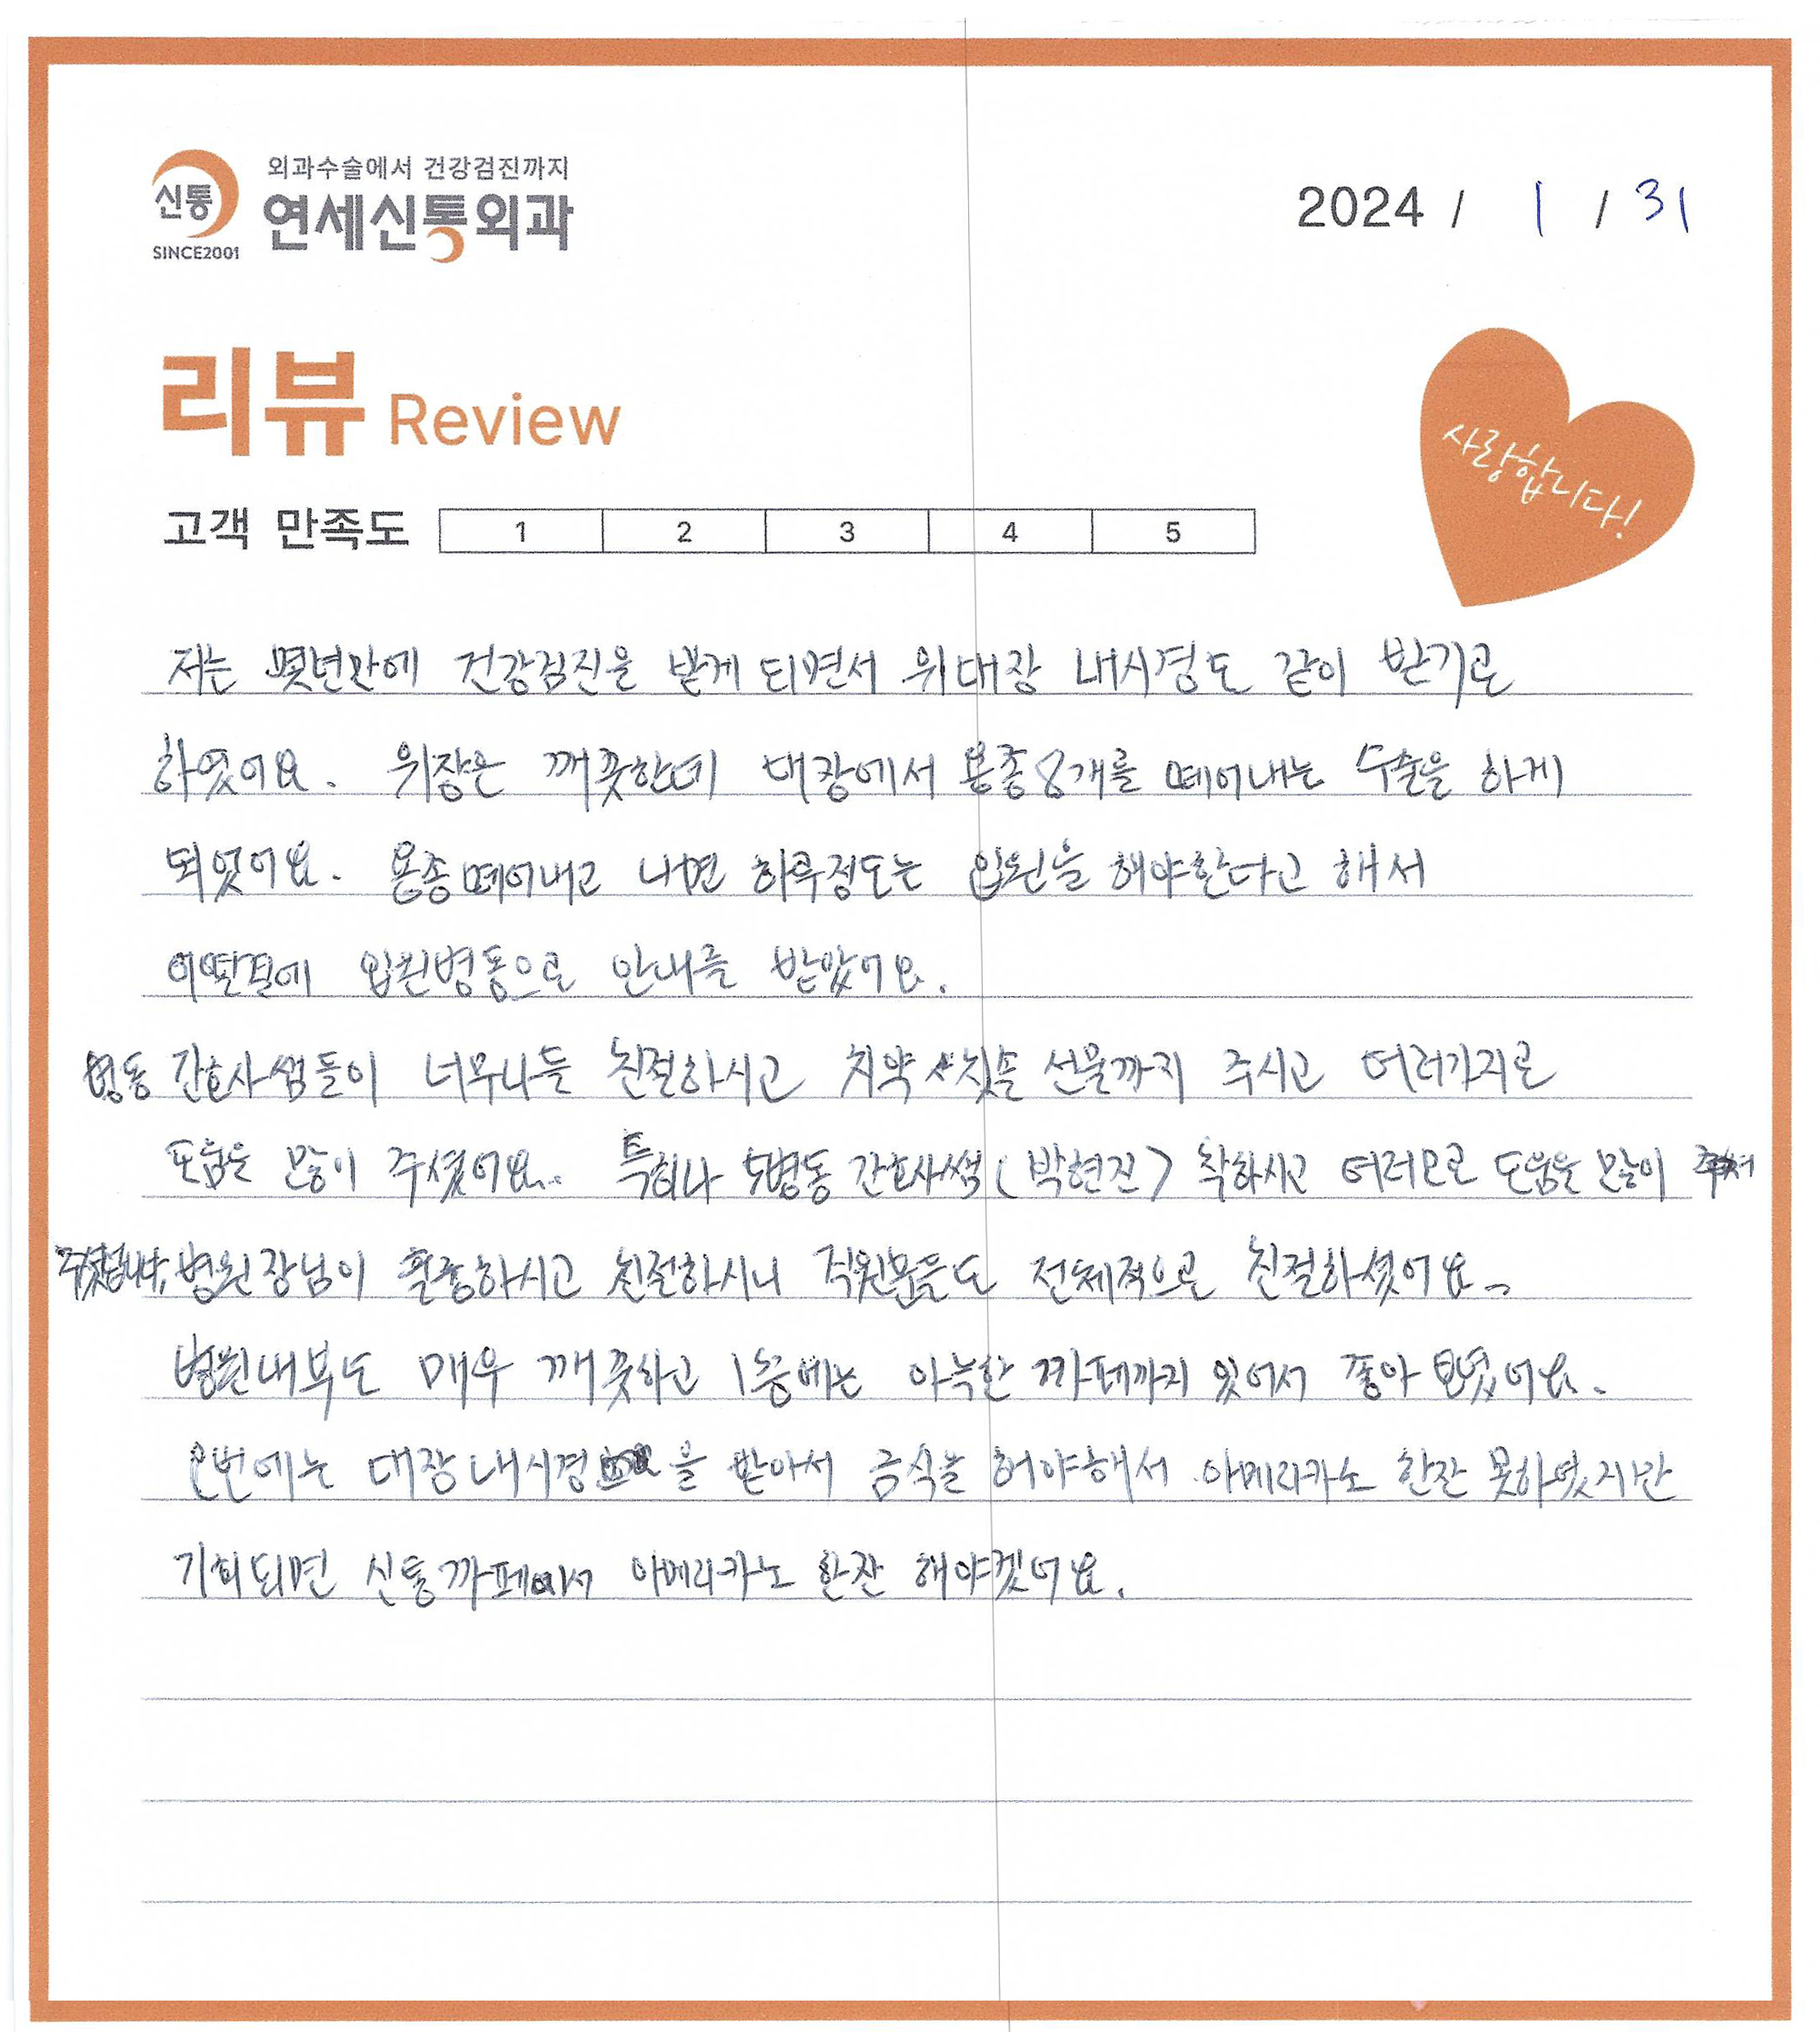 외과수술에서 건강검진까지
신통
연세신통외과
SINCE2001
2024 / 1 / 31
리뷰 Review
사랑합니다!
고객 만족도 1 2 3 4 5
저는 몇년만에 건강검진을 받게 되면서 위대장 내시경도 같이 받기로
하였어요. 위장은 깨끗한데 대장에서 용종 8개를 떼어내는 수술을 하게
되었어요. 용종 떼어내고 나면 하루정도는 입원을 해야한다고 해서
얼떨결에 입원병동으로 안내를 받았어요.
병동 간호사쌤들이 너무나들 친절하시고 치약 칫솔 선물까지 주시고 여러가지로
도움을 많이 주셨어요.. 특히나 5병동 간호사쌤 (박현진) 착하시고 여러모로 도움을 많이
주셨습니다, 병원장님이 훌륭하시고 친절하시니 직원분들도 전체적으로 친절하셨어요~
병원내부도 매우 깨끗하고 1층에는 아늑한 까페까지 있어서 좋아 보였어요.
요번에는 대장 내시경을 받아서 금식을 해야해서 아메리카노 한잔 못하였지만
기회되면 신통까페에서 아메리카노 한잔 해야겠어요.